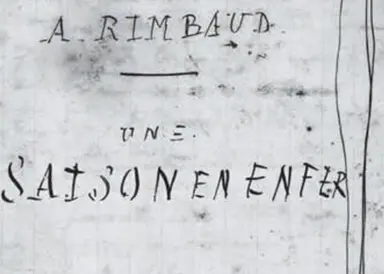 A. RIMBAUD.
UNE.
SAISON EN ENFER